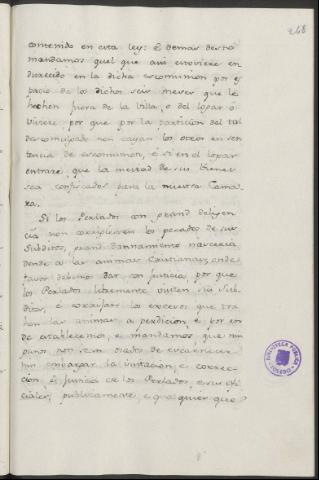 268
contenido en esta ley: é demas desto
mandamos quel que asi estoviere en
durecido en la dicha escomunion por es
pacio de los dichos seis meses que le
hechen fuera de la Villa, o del logar ó
viviere por que por la particion del tal
descomulgado non cayan los otros en sen
tencia de escomunion, é si en el logar
entrare que la meytad de sus bienes
sea confiscados para la nuestra Cama-
ra.
Si los Perlados con grand deligen
cia non corrigiesen los pecados de sus
Subditos, grand dannamiento nasceria
dende a las animas Cristianas; onde
favor debemos dar con justicia por que
los Perlados libremente visiten sus Sub-
ditos, é corrijan los excesos que tra
hen las animas a perdicion, e por en
de establecemos, e mandamos que nin
gunos non sean osados de
nin embargar la visitacion, e correc-
cion, é justicia de los Perlados, e sus ofi
ciales, publicamente, e qualquier que
BIBLIOTECA PUBLICA
TOLEDO